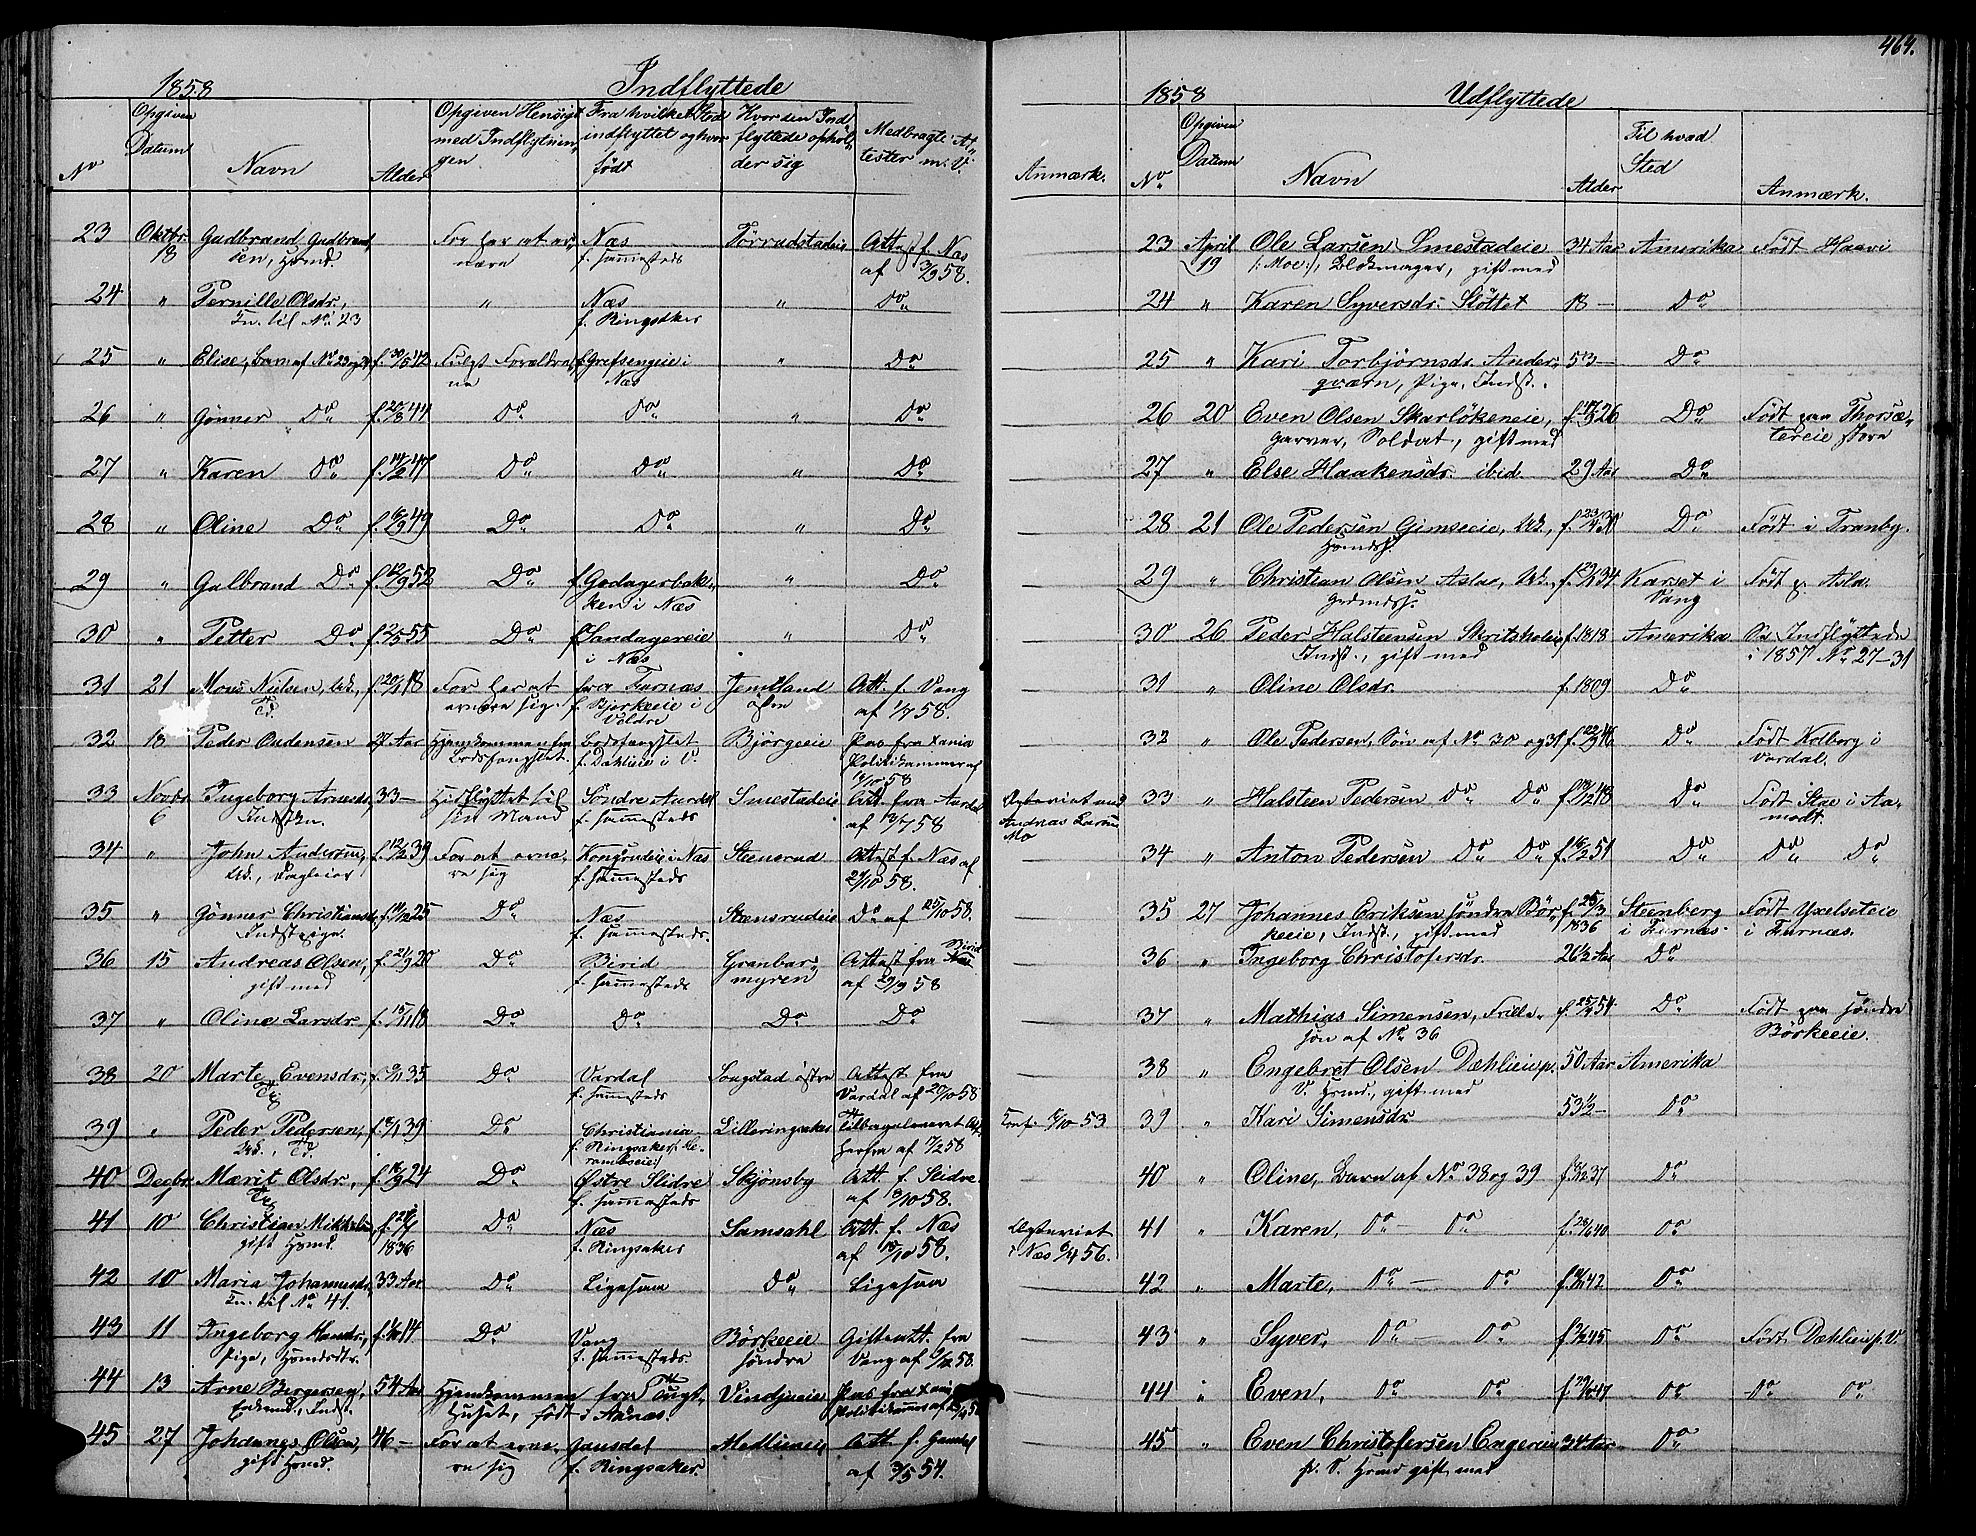 464.
1858 Indflyttede
No
Opgiven Datum
Navn
Alder
Opgiven Hensigt med Indflytningen
Fra hvilket Sted indflyttet og hvor født
Hvor den Indflyttede opholder sig
Medbragte Attester m. V.
Anmærk.
23 Oktbr. 18 Gudbrand Gudbrandsen, Hsmd. For her at ernære Næs f. sammesteds Torrudstadeie Attest f. Næs af 3/9 58.
24 " Pernille Olsdr., Kn. til No 23 " Næs f. Ringsaker " Do
25 " Elise, barn af No 23 og 24 f. 30/5 42 Fulgt Forældrene f. Grefsengeie i Næs " Do
26 " Gønner Do f. 20/8 44 Do Do " Do
27 " Karen Do f. 14/2 47 Do Do " Do
28 " Oline Do f. 16/9 49 Do Do " Do
29 " Gulbrand Do f. 12/9 52 Do f. Godagerbakken i Næs " Do
30 " Petter Do f. 2/5 55 Do f. Sandagereie i Næs " Do
31 21 Mons Nielsen, Uk., Tj. f. 20/1 18 For her at ernære sig fra Furnæs f. Bjerkeeie i Voldre Jemtland østre Att. f. Vang af 1/7 58.
32 18 Peder Oudensen 27 Aar Hjemkommen fra Bodsfængslet Bodsfængslet f. Dæhlieie i V. Bjørgeeie Pas fra Xania Politikammer af 14/10 58
33 Novbr 6 Ingeborg Arnesdr, Indstkn. 33 — Hidflyttet til sin Mand Søndre Aurdal f. sammesteds Smestadeie Att. fra Aurdal af 13/7 58 Andreas Larsen Mo
34 " John Andersen, Uk., Dagleier f. 12/2 39 For at ernære sig Kongsrudeie i Næs f. sammesteds Steensrud Attest f. Næs af 27/10 58.
35 " Gønner Christiansdr, Indst. pige. f. 11/12 25 Do Næs f. sammesteds. Steensrudeie Do af 25/10 58.
36 15 Andreas Olsen, gift med f. 21/9 20 Do Birid f. sammesteds Granbarmyren Attest fra Birid af 29/9 58
37 " Oline Larsdr. f. 15/11 18 Do Do Do Do
38 20 Marte Evensdr, Tj. f. 9/11 35 Do Vardal f. sammesteds Songstad østre Attest fra Vardal af 20/10 58
39 " Peder Pedersen, Uk., Tj. f. 8/1 39 Do Christiania f. Ringsaker Lilleringsaker Tilbageleveret Att. herfra af 17/2 58 Conf. 2/10 53
40 Decbr 1 Marit Olsdr., Tj. f. 16/9 24 Do Østre Slidre f. sammesteds Skjønsby Att. f. Slidre af 8/10 58.
41 10 Christian Mikkelsen gift Hsmd. 1836 Do Næs f. Ringsaker Samsahl Att. f. Næs af 18/10 58. i Næs 6/4 56.
42 10 Maria Johannesdr, Kn. til No 41. 33 Aar Do Ligesaa Do Ligesaa
43 11 Ingeborg Hansdr, Pige, Hsmdsdtr. 14 Do Vang f. sammesteds. Børkeeie søndre Gifteatt. fra Vang af 9/12 58
44 13 Arne Bergersen, Enkemd., Indst. 54 Aar Hjemkommen fra Tugthuset, født i Aanæs. Vindjueie Pas fra Xania Politikamr af
45 27 Johannes Olsen, gift Hsmd. 46 — For at ernære sig Gausdal f. Ringsaker. Mælumeie Att. f. Gausdal af 3/5 54.
1858 Udflyttede
No
Opgiven Datum
Navn
Alder
Til hvad Sted
Anmærk.
23 April 19 Ole Larsen Smestadeie /:Moe:/, Blokmager, gift med 34 Aar Amerika Født Haavi
24 " Karen Syversdr. Slottet 18 — Do
25 " Kari Torbjørnsdr. Anderqværn, Pige, Indst. 53 — Do
26 20 Even Olsen Skarløkeneie, garver, Soldat, gift med f. 17/9 26 Do Født paa Thorsætereie store
27 " Else Haakensdr. ibid. 29 Aar Do
28 21 Ole Pedersen Gimseeie, Uk., Hsmdss. f. 23/4 31 Do Født i Tranby.
29 " Christian Olsen Aslae, Uk., Grdmdss. f. 29/1 34 Karset i Vang Født p. Asla.
30 26 Peder Halsteensen Skritsholeie, Indst., gift med f. 1818 Amerika Se Indflyttede i 1857 No 27–31
31 " Oline Olsdr. f. 1809 Do
32 " Ole Pedersen, Søn af No 30 og 31 f. 22/9 46 Do Født Kolberg i Vardal.
33 " Halsteen Pedersen Do Do f. 19/12 48 Do Født Stae i Aamodt.
34 " Anton Pedersen Do Do f. 16/2 51 Do Do Do
35 27 Johannes Eriksen søndre Børkeeie, Indst., gift med f. 25/3 1836 Steenberg i Furnæs. Født Yxelseteie i Furnæs.
36 " Ingeborg Christofersdr. 26½ Aar Do
37 " Mathias Simensen, Frillesøn af No 36 f. 25/4 54 Do Født paa søndre Børkeeie.
38 " Engebret Olsen Dæhlieie p. V. Hsmd., gift med 50 Aar Amerika
39 " Kari Simensdr. 53½ — Do
40 " Oline, Barn af No 38 og 39 f. 6/12 37 Do
41 " Karen, Do — Do f. 28/6 40 Do
42 " Marte, Do — Do f. 42 Do
43 " Syver, Do — Do f. 3/2 45 Do Født Dæhlieie p. V.
44 " Even, Do Do f. 47 Do Do Do
45 " Even Christofersen Engereie p. V. Hsmd gift med 34 Aar Do